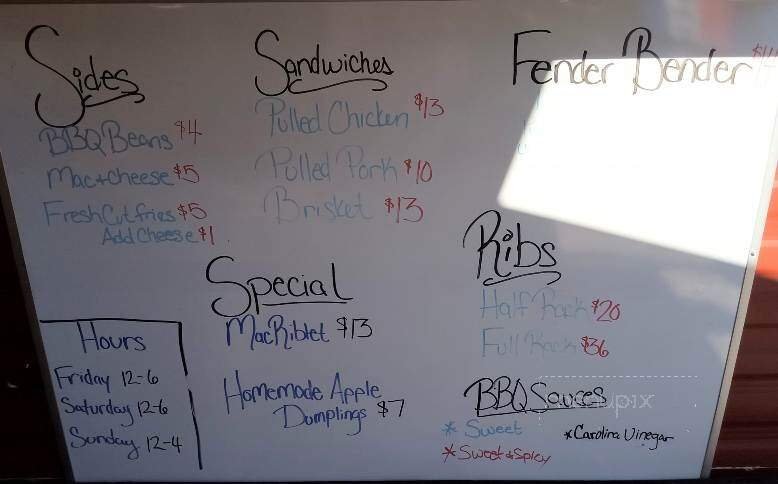 Sides
BBQ Beans $4
Mac+cheese $5
Fresh Cut fries $5
Add Cheese $1
Sandwiches
Pulled Chicken $13
Pulled Pork $10
Brisket $13
Fender Bender
Ribs
Half Rack $20
Full Rack $36
Special
MacRiblet $13
Homemade Apple
Dumplings $7
Hours
Friday 12-6
Saturday 12-6
Sunday 12-4
BBQ Sauces
* Sweet
* Carolina Vinegar
* Sweet & Spicy